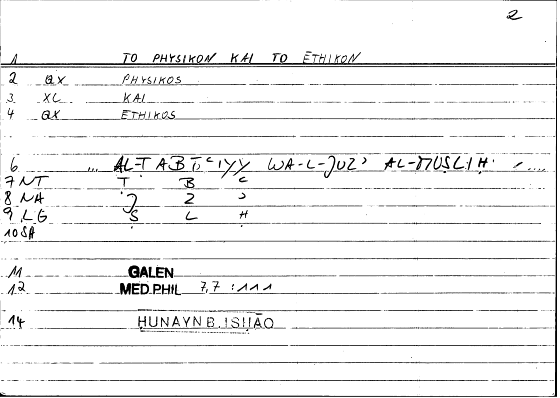 2
1 TO PHYSIKON KAI TO ETHIKON
2 QX PHYSIKOS
3 XC KAI
4 QX ETHIKOS
6 ... AL-ṬABĪʿIYY WA-L-ǦUZʾ AL-MUṢLIḤ
7 NT Ṭ B ʿ
8 NA Ǧ Z ʾ
9 LG Ṣ L Ḥ
10 SA
11 GALEN
12 MED.PHIL 7,7 :111
14 ḤUNAYN B. ISḤĀQ